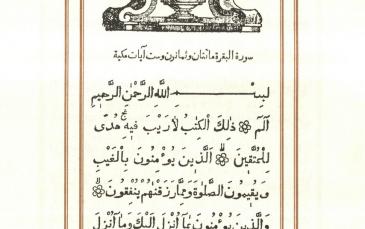 سورة البقرة مائتان وثمانون وست آيات مكية
لبِسْــــــمِ اللَّهِ الرَّحْمٰنِ الرَّحِيمِ
الٓمٓ ۝ ذٰلِكَ الْكِتٰبُ لَا رَيْبَ فِيهِ ۛ هُدًى
لِلْمُتَّقِينَ ۝ الَّذِينَ يُؤْمِنُونَ بِالْغَيْبِ
وَيُقِيمُونَ الصَّلٰوةَ وَمِمَّا رَزَقْنٰهُمْ يُنْفِقُونَ ۝
وَالَّذِينَ يُؤْمِنُونَ بِمَا أُنْزِلَ إِلَيْكَ وَمَا أُنْزِلَ